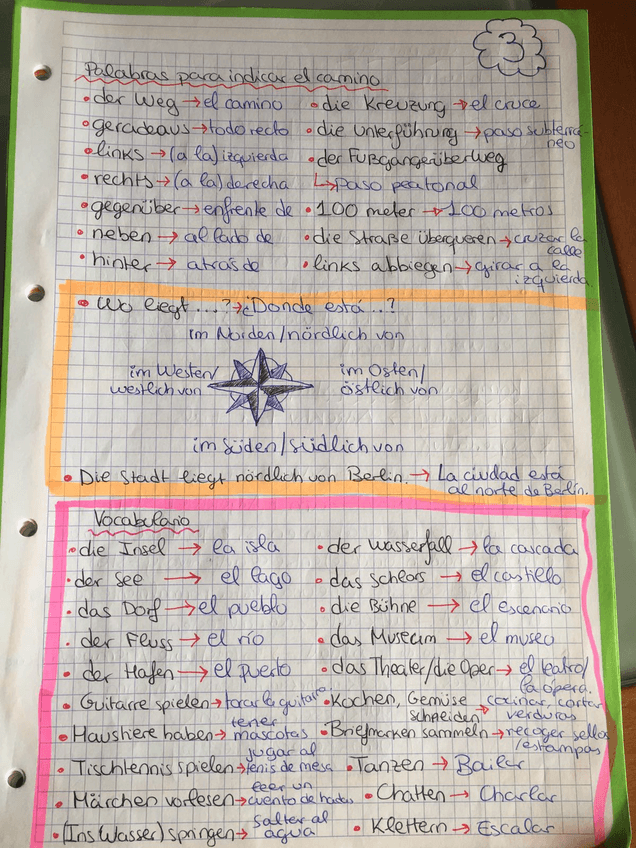 3
Palabras para indicar el camino
• der Weg → el camino
• geradeaus → todo recto
• links → (a la) izquierda
• rechts → (a la) derecha
• gegenüber → enfrente de
• neben → al lado de
• hinter → atrás de
• die Kreuzung → el cruce
• die Unterführung → paso subterrá-
neo
• der Fußgangerüberweg
↳ paso peatonal
• 100 meter → 100 metros
• die Straße überqueren → cruzar la
calle
• links abbiegen → girar a la
izquierda.
• Wo liegt...? → ¿Donde está..?
im Norden/nördlich von
im Westen/
westlich von
im Osten/
östlich von
im Süden/südlich von
• Die Stadt liegt nördlich von Berlin. → La ciudad está
al norte de Berlin.
Vocabulario
• die Insel → la isla
• der See → el lago
• das Dorf → el pueblo
• der Fluss → el río
• der Hafen → el puerto
• Guitarre spielen → tocar la guitara
• Haustiere haben → tener
mascotas
• Tischtennis spielen → jugar al
tenis de mesa
• Märchen vorlesen → leer un
cuento de hadas
• (Ins Wasser) springen → saltar al
agua
• der Wasserfall → la cascada
• das Schloss → el castillo
• die Bühne → el escenario
• das Museum → el museo
• das Theater/die Oper → el teatro/
la ópera.
• Kochen, Gemüse
schneiden → cocinar, cortar
verduras
• Briefmarken sammeln → recoger sellos
/estampas
• Tanzen → Bailar
• Chatten → Charlar
• Klettern → Escalar